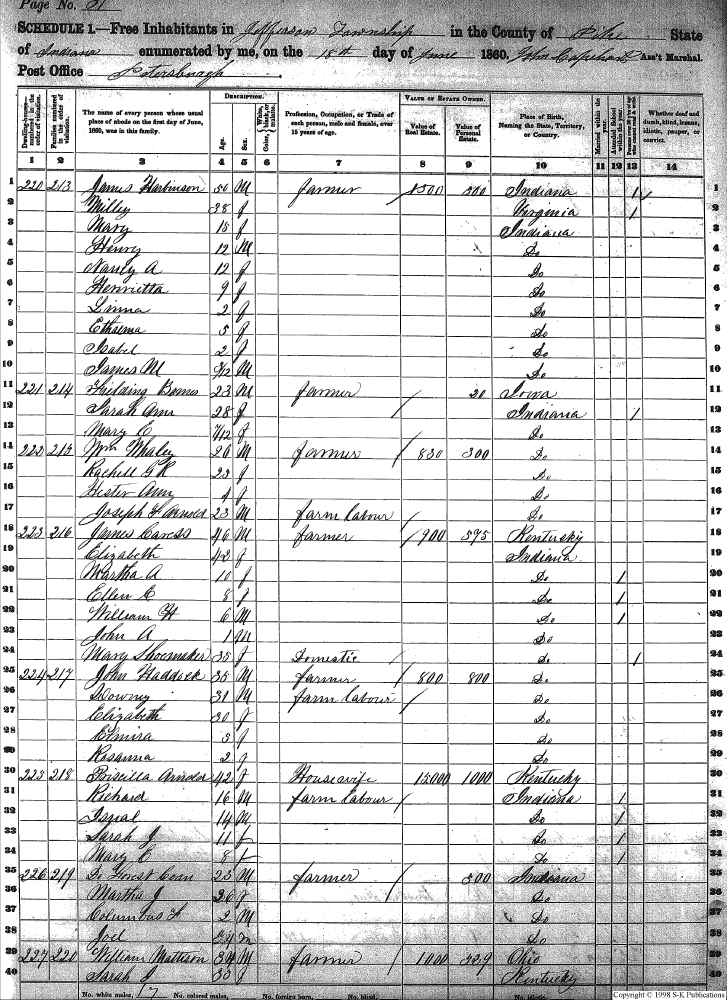 Page No. 31
SCHEDULE 1.—Free Inhabitants in Jefferson Township in the County of Pike State
of Indiana enumerated by me, on the 18th day of June 1860. John Capehart Ass't Marshal.
Post Office Petersburgh
Dwelling-houses—numbered in the order of visitation.
Families numbered in the order of visitation.
The name of every person whose usual place of abode on the first day of June, 1860, was in this family.
DESCRIPTION.
Age.
Sex.
Color, White, black, or mulatto.
Profession, Occupation, or Trade of each person, male and female, over 15 years of age.
VALUE OF ESTATE OWNED.
Value of Real Estate.
Value of Personal Estate.
Place of Birth, Naming the State, Territory, or Country.
Married within the year.
Attended School within the year.
Whether deaf and dumb, blind, insane, idiotic, pauper, or convict.
1 2 3 4 5 6 7 8 9 10 11 12 13 14
1 220 213 James Harbinson 50 M farmer 1500 Indiana / 1
2 Milley 38 f Virginia / 2
3 Mary 15 f Indiana 3
4 Henry 12 M Do 4
5 Nancy A 12 f Do 5
6 Henrietta 9 f Do 6
7 2 f Do 7
8 5 f Do 8
9 Isabel 2 f Do 9
10 James M /12 M Do 10
11 221 214 Fielding 23 M farmer 20 Iowa 11
12 Sarah Ann 28 f / Indiana / 12
13 Mary E /12 f Do 13
14 222 215 Wm Whaley 26 M farmer / 830 300 Do 14
15 Rachell G R 23 f Do 15
16 Hester Ann 4 f Do 16
17 Joseph F Arnold 23 M farm labour / Do 17
18 223 216 James Caress 46 M farmer / 900 595 Kentucky 18
19 Elizabeth 42 f Indiana 19
20 Martha A 10 f Do / 20
21 Ellen E 8 f Do / 21
22 William H 6 M Do / 22
23 John A 1 M Do 23
24 Mary Shoemaker 35 f Domestic / Do / 24
25 224 217 John Haddock 35 M farmer / 800 800 Do 25
26 Downey 31 M farm labour / Do 26
27 Elizabeth 30 f Do 27
28 Elmira 3 f Do 28
29 Rosanna 2 f Do 29
30 225 218 Priscilla Arnold 42 f Housewife 1000 Kentucky 30
31 Richard 16 M farm labour / Indiana / 31
32 14 M Do / 32
33 Sarah J 11 f Do / 33
34 Mary E 8 f Do / 34
35 226 219 Coan 25 M farmer / 500 Indiana 35
36 Martha J 26 f Do 36
37 Columbus F 2 M Do 37
38 Joel 54 m Do 38
39 227 220 William Mattison 34 M farmer / 1000 Ohio 39
40 Sarah J 33 f Kentucky 40
No. white males, 17 No. colored males, No. foreign born, No. blind, No. idiotic,
Copyright © 1998 S-K Publications